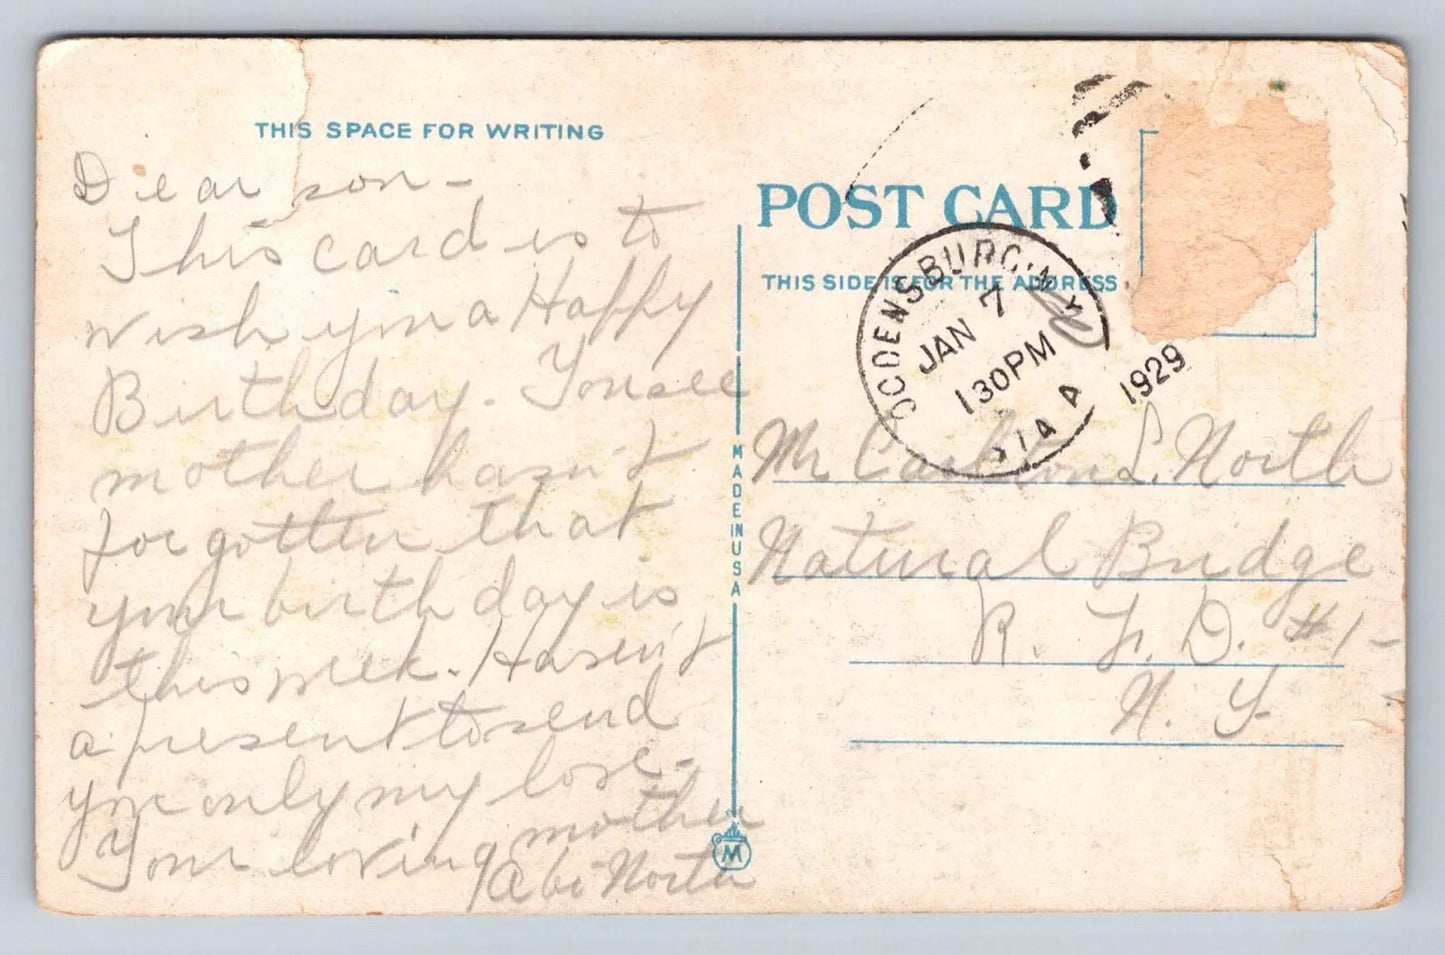 THIS SPACE FOR WRITING
Dear son -
This card is to
wish you a Happy
Birthday. You see
mother hasn't
forgotten that
your birthday is
this week. Hasn't
a present to send
you only my love -
Your loving mother
Abi North
POST CARD
THIS SIDE IS FOR THE ADDRESS
OGDENSBURG. N.Y.
JAN 7
130 PM
1929
STA A
MADE IN USA
M
Mr Carlton L. North
Natural Bridge
R. F. D. #1 -
N. Y.